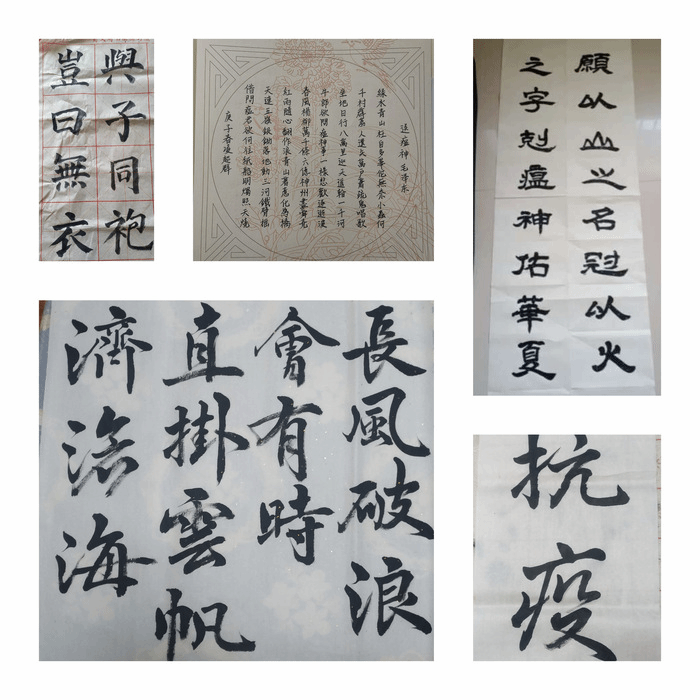 與子同袍
豈曰無衣
送瘟神 毛澤东
綠水青山枉自多華佗無奈小蟲何
千村薜荔人遺矢萬戶蕭疏鬼唱歌
坐地日行八萬里巡天遙看一千河
牛郎欲問瘟神事一樣悲歡逐逝波
春風楊柳萬千條六億神州盡舜堯
紅雨隨心翻作浪青山著意化為橋
天連五嶺銀鋤落地動三河鐵臂搖
借問瘟君欲何往紙船明燭照天燒
庚子春
願以山之名冠以火
之字剋瘟神佑華夏
長風破浪
會有時
直掛雲帆
濟滄海
抗疫